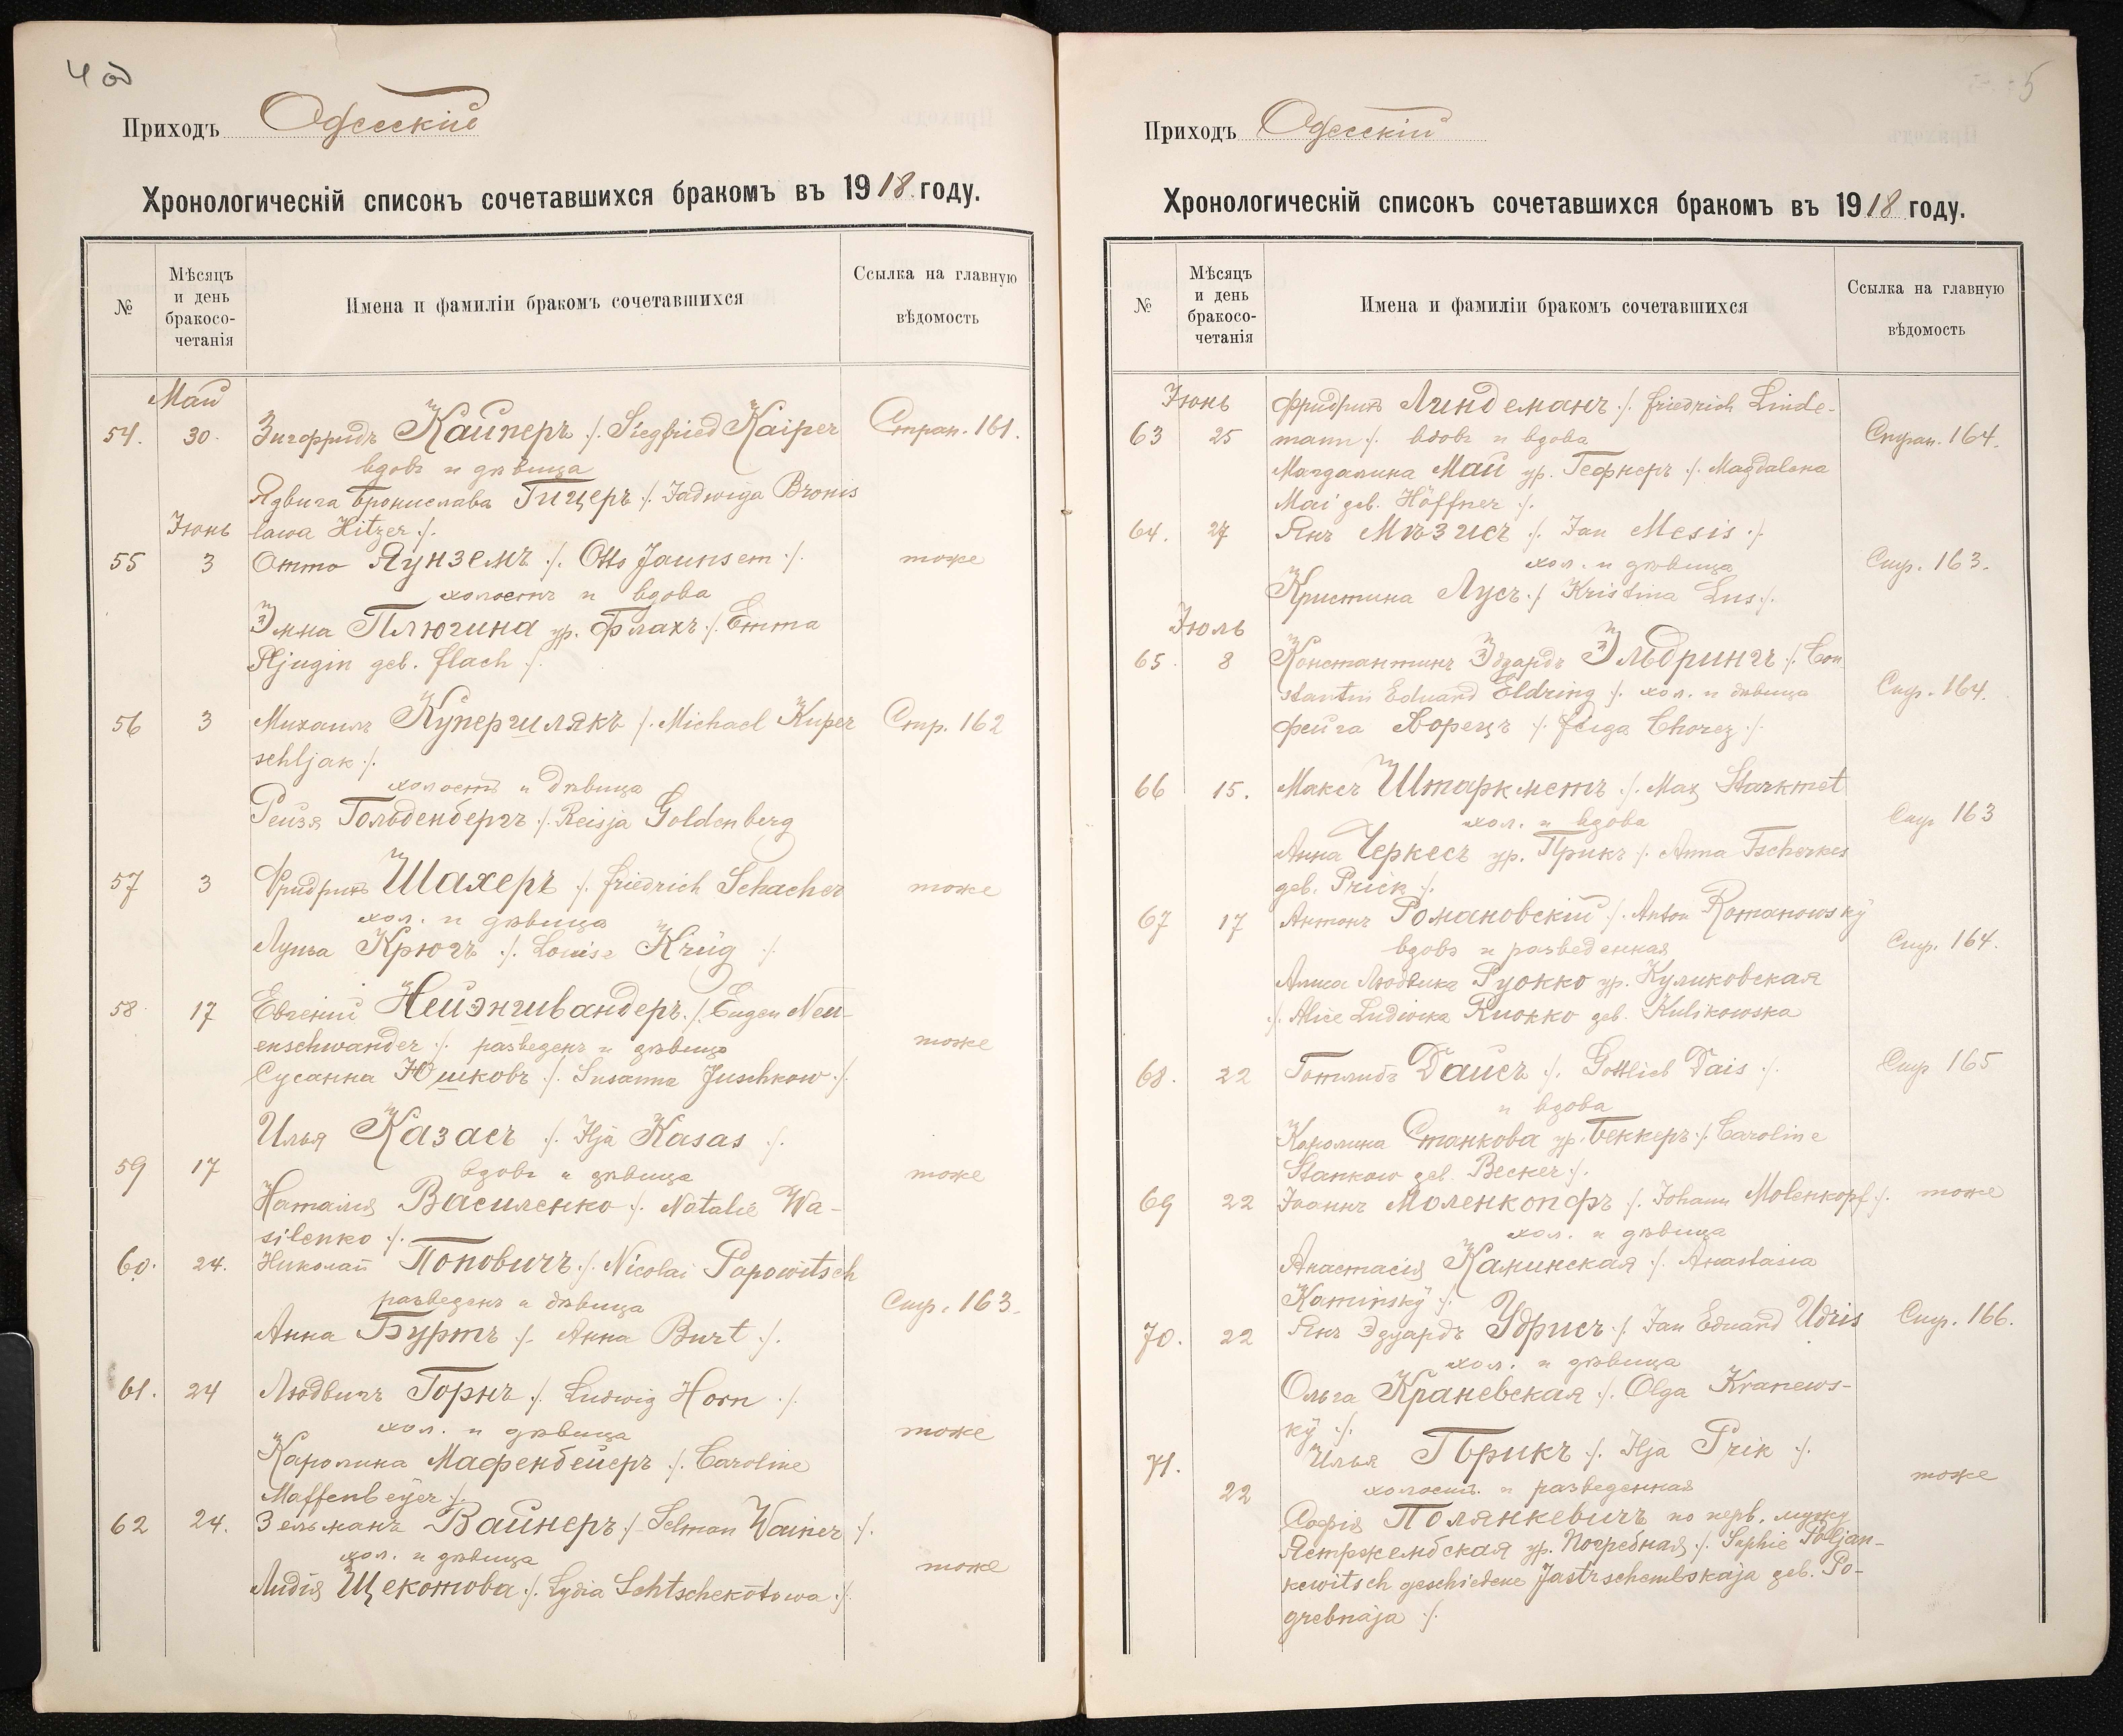 4 об
Приходъ Одесскій
Хронологическій списокъ сочетавшихся бракомъ въ 1918 году.
№
Мѣсяцъ
и день
бракосо-
четанія
Имена и фамиліи бракомъ сочетавшихся
Ссылка на главную
вѣдомость
Май
54. 30. Зигфридъ Кайперъ ./. Siegfried Kaiper Стран. 161.
вдовъ и дѣвица
Ядвига Бронислава Гицеръ ./. Jadwiga Bronis
Іюнь lawa Hitzer ./.
55 3 Отто Яунземъ ./. Otto Jaunsem ./. тоже
холостъ и вдова
Эмма Плюгина ур. Флахъ ./. Emma
Pljugin geb. Flach ./.
56 3 Михаилъ Купершлякъ ./. Michael Kuper Стр. 162
schljak ./.
холостъ и дѣвица
Рейзя Гольденбергъ ./. Reisja Goldenberg
57 3 Фридрихъ Шахеръ ./. Friedrich Schacher тоже
хол. и дѣвица
Луиза Крюгъ ./. Louise Krüg ./.
58 17 Евгеній Нейэншвандеръ ./. Eugen Neu-
enschwander ./. разведенъ и дѣвица тоже
Сусанна Юшковъ ./. Susanna Juschkow ./.
Илья Казасъ ./. Ilja Kasas ./.
59 17 вдовъ и дѣвица тоже
Наталія Василенко ./. Natalie Wa-
silenko ./.
60. 24. Николай Поповичъ ./. Nicolai Popowitsch
разведенъ и дѣвица Стр. 163.
Анна Буртъ ./. Анна Burt ./.
61. 24 Людвигъ Горнъ ./. Ludwig Horn ./.
хол. и дѣвица тоже
Каролина Мафенбейеръ ./. Caroline
Maffenbeyer ./.
62 24. Зельманъ Вайнеръ ./. Selman Wainer ./.
хол. и дѣвица тоже
Лидія Щекотова ./. Lydia Schtschekotowa ./.
5
Приходъ Одесскій
Хронологическій списокъ сочетавшихся бракомъ въ 1918 году.
№
Мѣсяцъ
и день
бракосо-
четанія
Имена и фамиліи бракомъ сочетавшихся
Ссылка на главную
вѣдомость
Іюнь Фридрихъ Линдеманъ ./. Friedrich Linde-
63 25 mann ./. вдовъ и вдова Стран. 164.
Магдалина Май ур. Гефнеръ ./. Magdalena
Mai geb. Höffner ./.
64. 27 Янъ Мѣзисъ ./. Jan Mesis ./.
хол. и дѣвица Стр. 163.
Кристина Лусъ ./. Kristina Lus ./.
Іюль
65. 8 Константинъ Эдуардъ Эльдрингъ ./. Con
stantin Eduard Eldring ./. хол. и дѣвица Стр. 164.
Фейга Хорецъ ./. Feiga Chorez ./.
66 15. Максъ Штаркметъ ./. Max Starkmet
хол. и вдова Стр 163
Анна Черкесъ ур. Прикъ ./. Anna Tscherkes
geb. Prick ./.
67 17 Антонъ Романовскій ./. Anton Romanowsky
вдовъ и разведенная Стр. 164.
Алиса Людвика Руокко ур. Куликовская
./. Alice Ludwika Ruokko geb. Kulikowska
68. 22 Готлибъ Дайсъ ./. Gottlieb Dais ./. Стр 165
и вдова
Каролина Станкова ур. Беккеръ ./. Caroline
Stankow geb. Becker ./.
69 22 Іоаннъ Моленкопфъ ./. Johann Molenkopf ./. тоже
хол. и дѣвица
Анастасія Каминская ./. Anastasia
Kaminsky ./.
70. 22 Янъ Эдуардъ Удрисъ ./. Jan Eduard Udris Стр. 166.
хол. и дѣвица
Ольга Краневская ./. Olga Kranews-
ky ./.
71. Илья Прикъ ./. Ilja Prik ./.
22 холостъ. и разведенная тоже
Софія Полянкевичъ по перв. мужу
Ястржембская ур. Погребная ./. Sophie Poljan-
kewitsch geschiedene Jastrschembskaja geb. Po-
grebnaja ./.